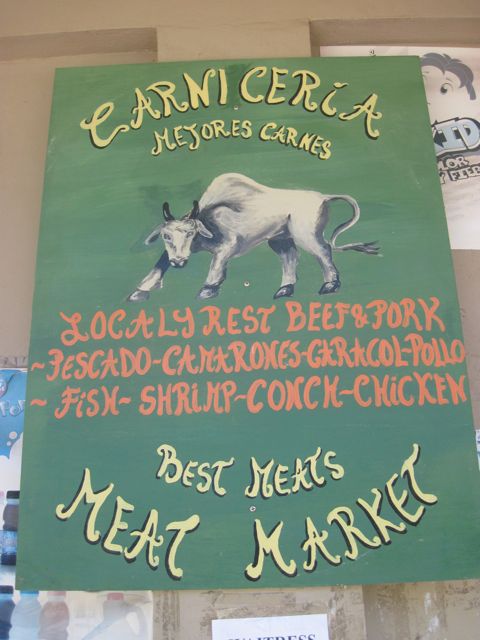 CARNICERiA
MEJORES CARNES
LOCALY REST BEEF & PORK
~PESCADO-CAMARONES-CARACOL-POLLO
~ FiSH~ SHRIMP~CONCH~CHiCKEN
BEST MEATS
MEAT MARKET
WAITRESS